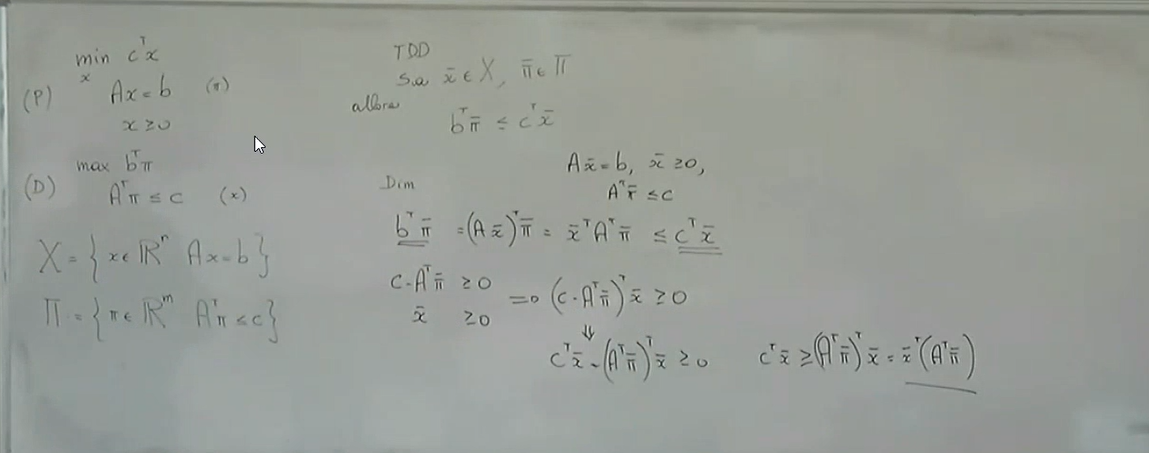 min cᵀx
x
(P) Ax = b (π)
x ≥ 0
max bᵀπ
(D) Aᵀπ ≤ c (x)
X = { x ∈ ℝⁿ Ax = b }
Π = { π ∈ ℝᵐ Aᵀπ ≤ c }
TDD
S.a x̄ ∈ X, π̄ ∈ Π
allora
bᵀπ̄ ≤ cᵀx̄
Ax̄ = b, x̄ ≥ 0,
Aᵀπ̄ ≤ c
Dim
bᵀπ̄ = (Ax̄)ᵀπ̄ = x̄ᵀAᵀπ̄ ≤ cᵀx̄
c - Aᵀπ̄ ≥ 0
x̄ ≥ 0
⇒ (c - Aᵀπ̄)ᵀx̄ ≥ 0
⇓
cᵀx̄ - (Aᵀπ̄)ᵀx̄ ≥ 0 cᵀx̄ ≥ (Aᵀπ̄)ᵀx̄ = x̄ᵀ(Aᵀπ̄)